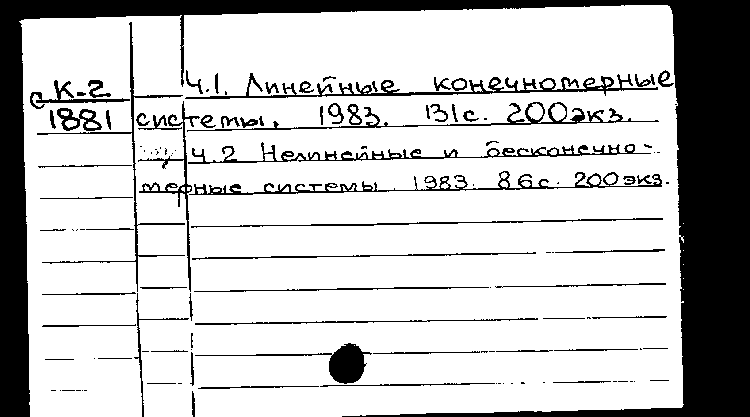 с К-2
1881
Ч.1. Линейные конечномерные
системы. 1983. 131с. 200экз.
Ч.2 Нелинейные и бесконечно-
мерные системы. 1983. 86с. 200экз.